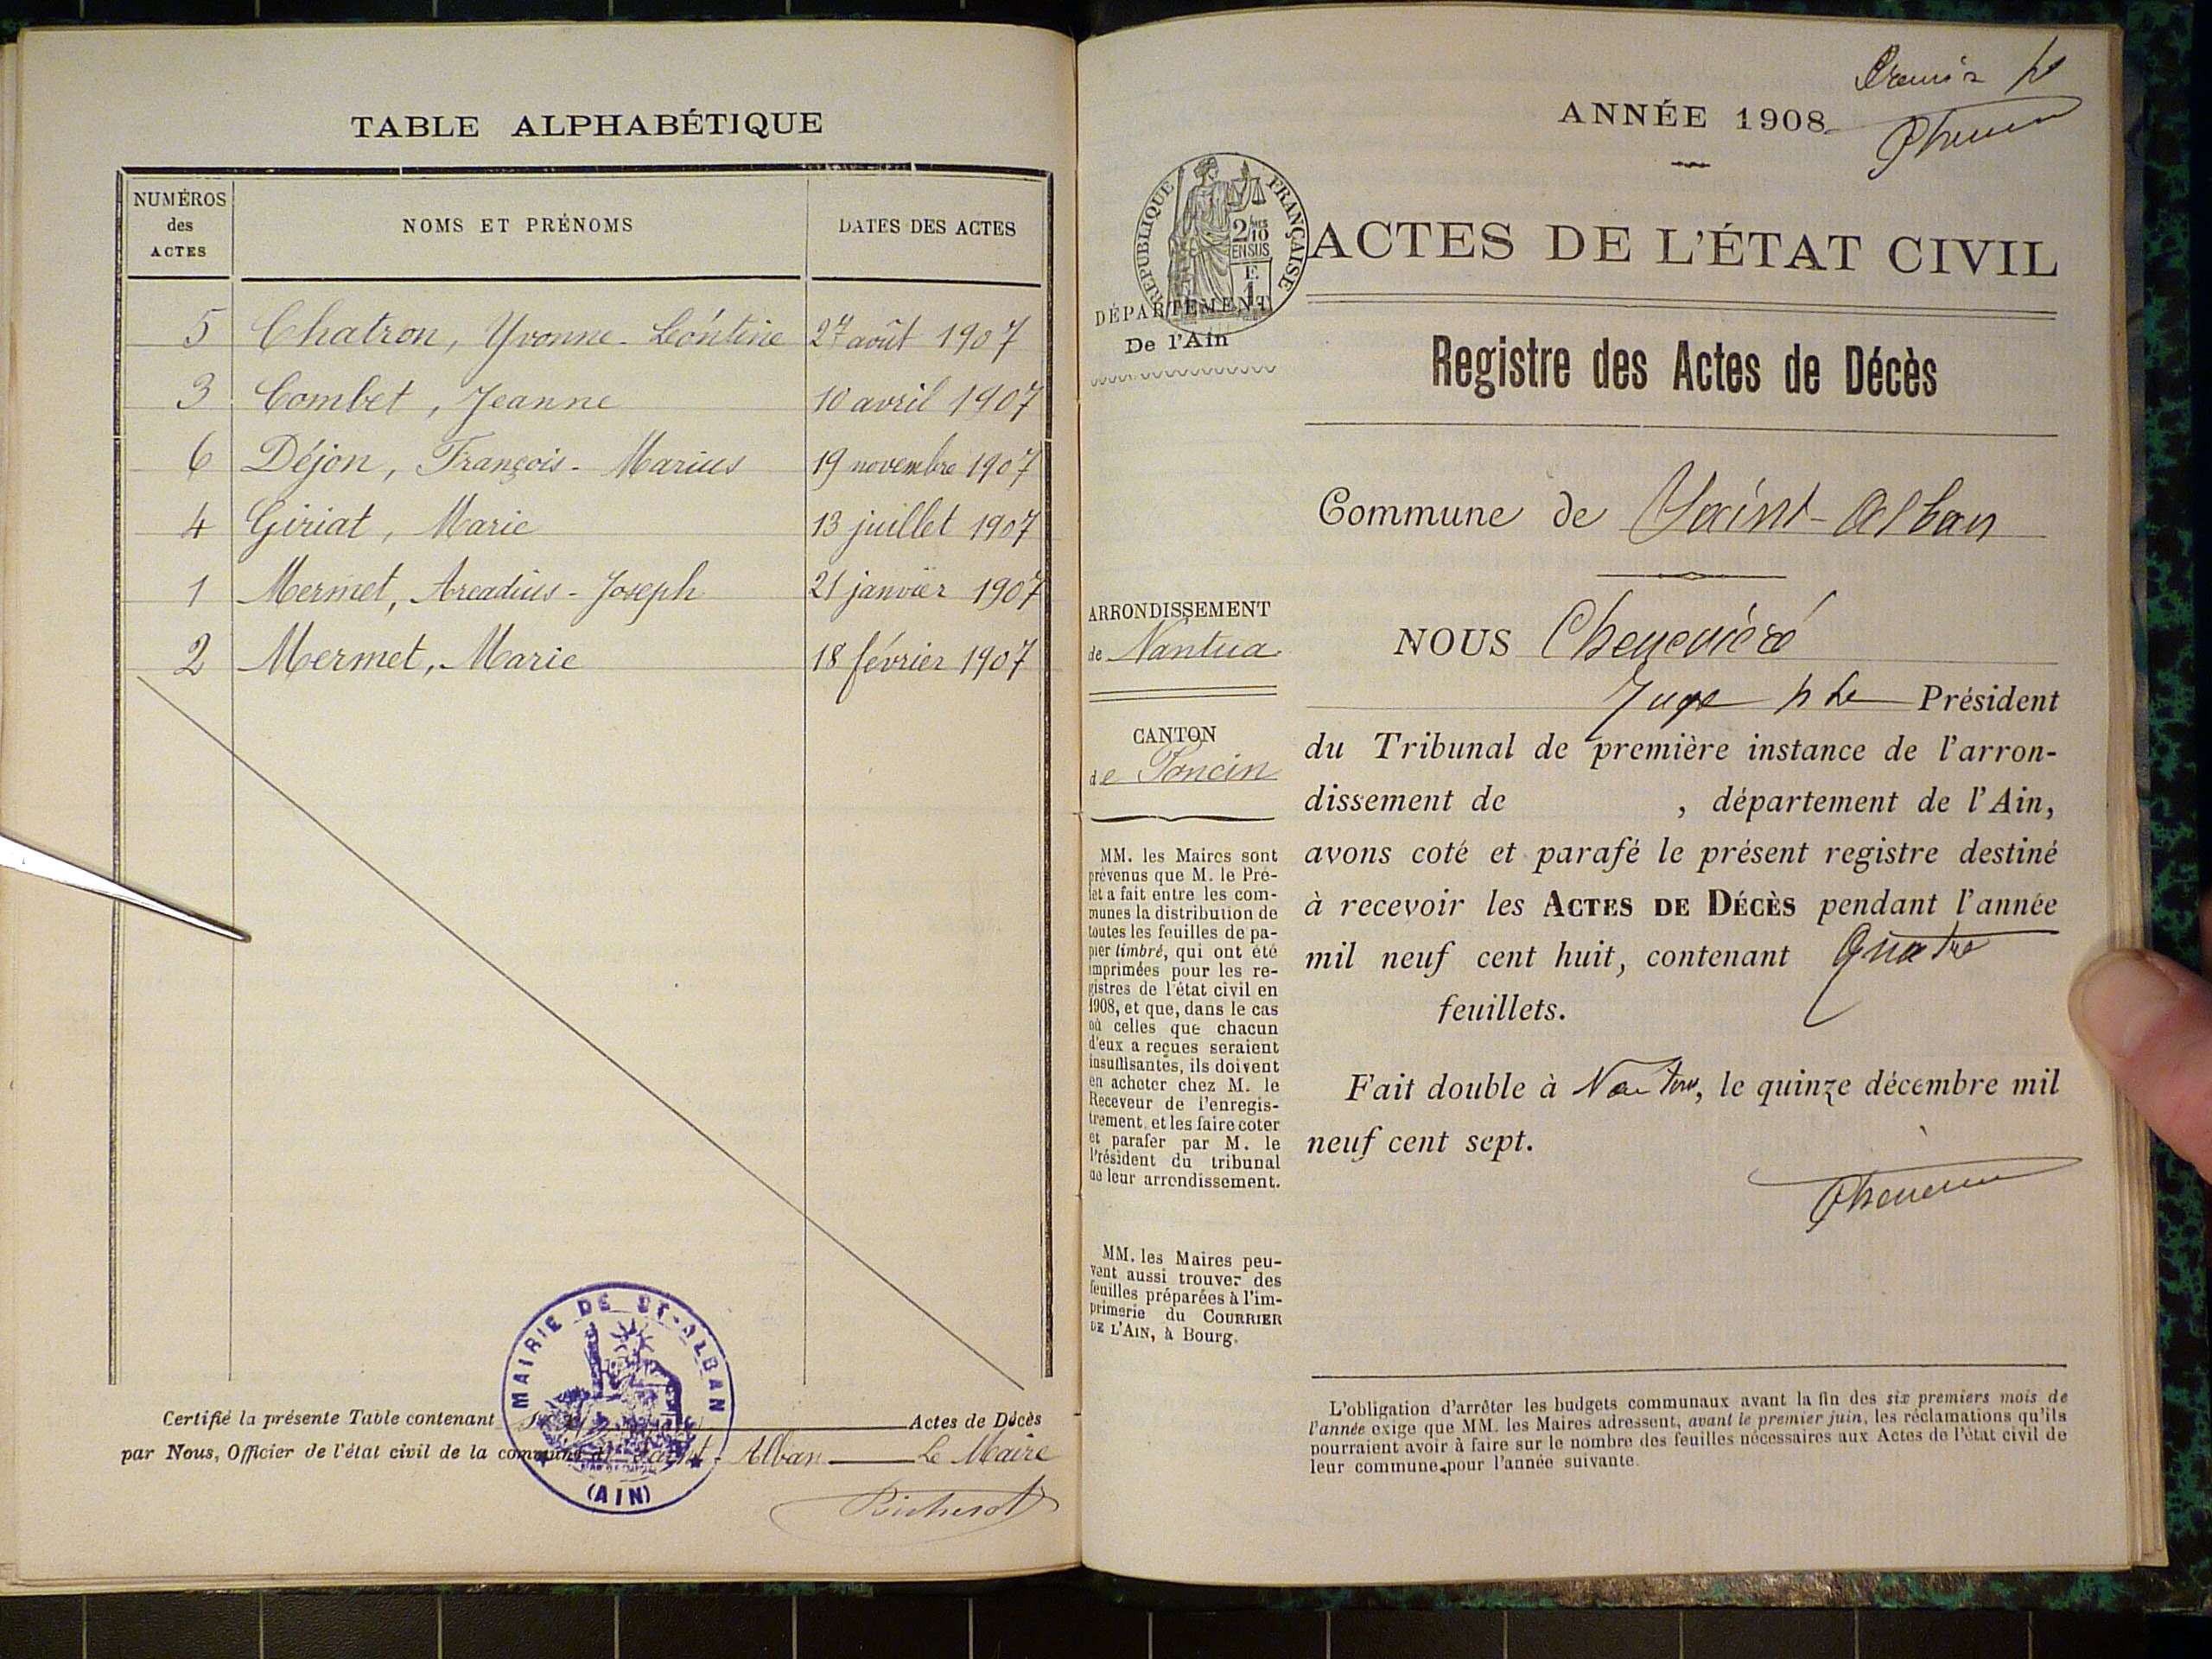 TABLE ALPHABÉTIQUE
NUMÉROS des ACTES | NOMS ET PRÉNOMS | DATES DES ACTES
5 Chatron, Yvonne-Léontine 27 août 1907
3 Combet, Jeanne 10 avril 1907
6 Déjon, François-Marius 19 novembre 1907
4 Giriat, Marie 13 juillet 1907
1 Mermet, Arcadius-Joseph 21 janvier 1907
2 Mermet, Marie 18 février 1907
Certifié la présente Table contenant Actes de Décès
par Nous, Officier de l'état civil de la commune de Saint-Alban Le Maire
MAIRIE DE ST-ALBAN
(AIN)
ANNÉE 1908
RÉPUBLIQUE FRANÇAISE
2/10 EN SUS
ACTES DE L'ÉTAT CIVIL
DÉPARTEMENT
De l'Ain
Registre des Actes de Décès
Commune de Saint-Alban
ARRONDISSEMENT
de Nantua
CANTON
de Poncin
MM. les Maires sont
prévenus que M. le Pré-
fet a fait entre les com-
munes la distribution de
toutes les feuilles de pa-
pier timbré, qui ont été
imprimées pour les re-
gistres de l'état civil en
1908, et que, dans le cas
où celles que chacun
d'eux a reçues seraient
insuffisantes, ils doivent
en acheter chez M. le
Receveur de l'enregis-
trement, et les faire coter
et parafer par M. le
Président du tribunal
de leur arrondissement.
MM. les Maires peu-
vent aussi trouver des
feuilles préparées à l'im-
primerie du COURRIER
DE L'AIN, à Bourg.
NOUS Chenevière
Juge Président
du Tribunal de première instance de l'arron-
dissement de , département de l'Ain,
avons coté et parafé le présent registre destiné
à recevoir les ACTES DE DÉCÈS pendant l'année
mil neuf cent huit, contenant Quatre
feuillets.
Fait double à Nantua, le quinze décembre mil
neuf cent sept.
L'obligation d'arrêter les budgets communaux avant la fin des six premiers mois de
l'année exige que MM. les Maires adressent, avant le premier juin, les réclamations qu'ils
pourraient avoir à faire sur le nombre des feuilles nécessaires aux Actes de l'état civil de
leur commune pour l'année suivante.